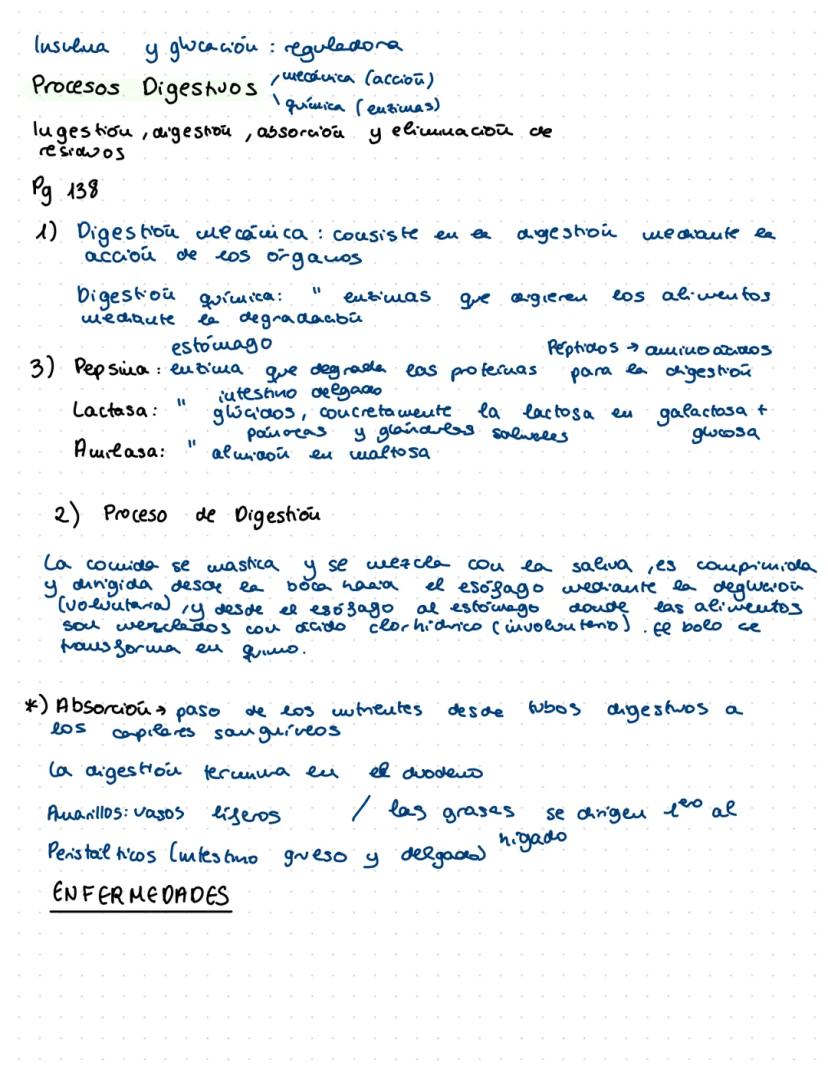 Insulina y glucación : reguladora
Procesos Digestivos / mecánica (acción)
\ química (enzimas)
Ingestión, digestión, absorción y eliminación de
residuos
Pg 138
1) Digestión mecánica : consiste en la digestión mediante la
acción de los órganos
Digestión química: " enzimas que digieren los alimentos
mediante la degradación
estómago Péptidos → aminoácidos
3) Pepsina : enzima que degrada las proteínas para la digestión
intestino delgado
Lactasa: " glúcidos, concretamente la lactosa en galactosa +
páncreas y glándulas salivales glucosa
Amilasa: " almidón en maltosa
2) Proceso de Digestión
La comida se mastica y se mezcla con la saliva, es comprimida
y dirigida desde la boca hacia el esófago mediante la deglución
(voluntaria), y desde el esófago al estómago donde las alimentos
son mezclados con ácido clorhídrico (involuntario). El bolo se
transforma en quimo.
*) Absorción → paso de los nutrientes desde tubos digestivos a
los capilares sanguíneos
La digestión termina en el duodeno
Amarillos: vasos / las grasas se dirigen 1ero al
hígado
Peristálticos (intestino grueso y delgado)
ENFERMEDADES